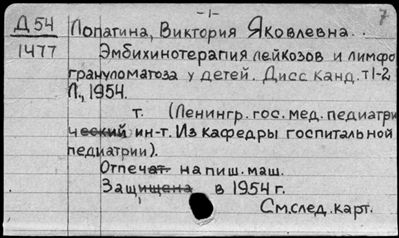 -1-
7
Д 54
1477
Лопатина, Виктория Яковлевна..
Эмбихинотерапия лейкозов и лимфо
грануломатоза у детей. Дисс канд. т 1-2
Л., 1954.
т. (Ленингр. гос. мед. педиатри
ческий ин-т. Из кафедры госпитальной
педиатрии).
Отпечат. на пиш. маш.
Защищена в 1954 г.
См. след. карт.